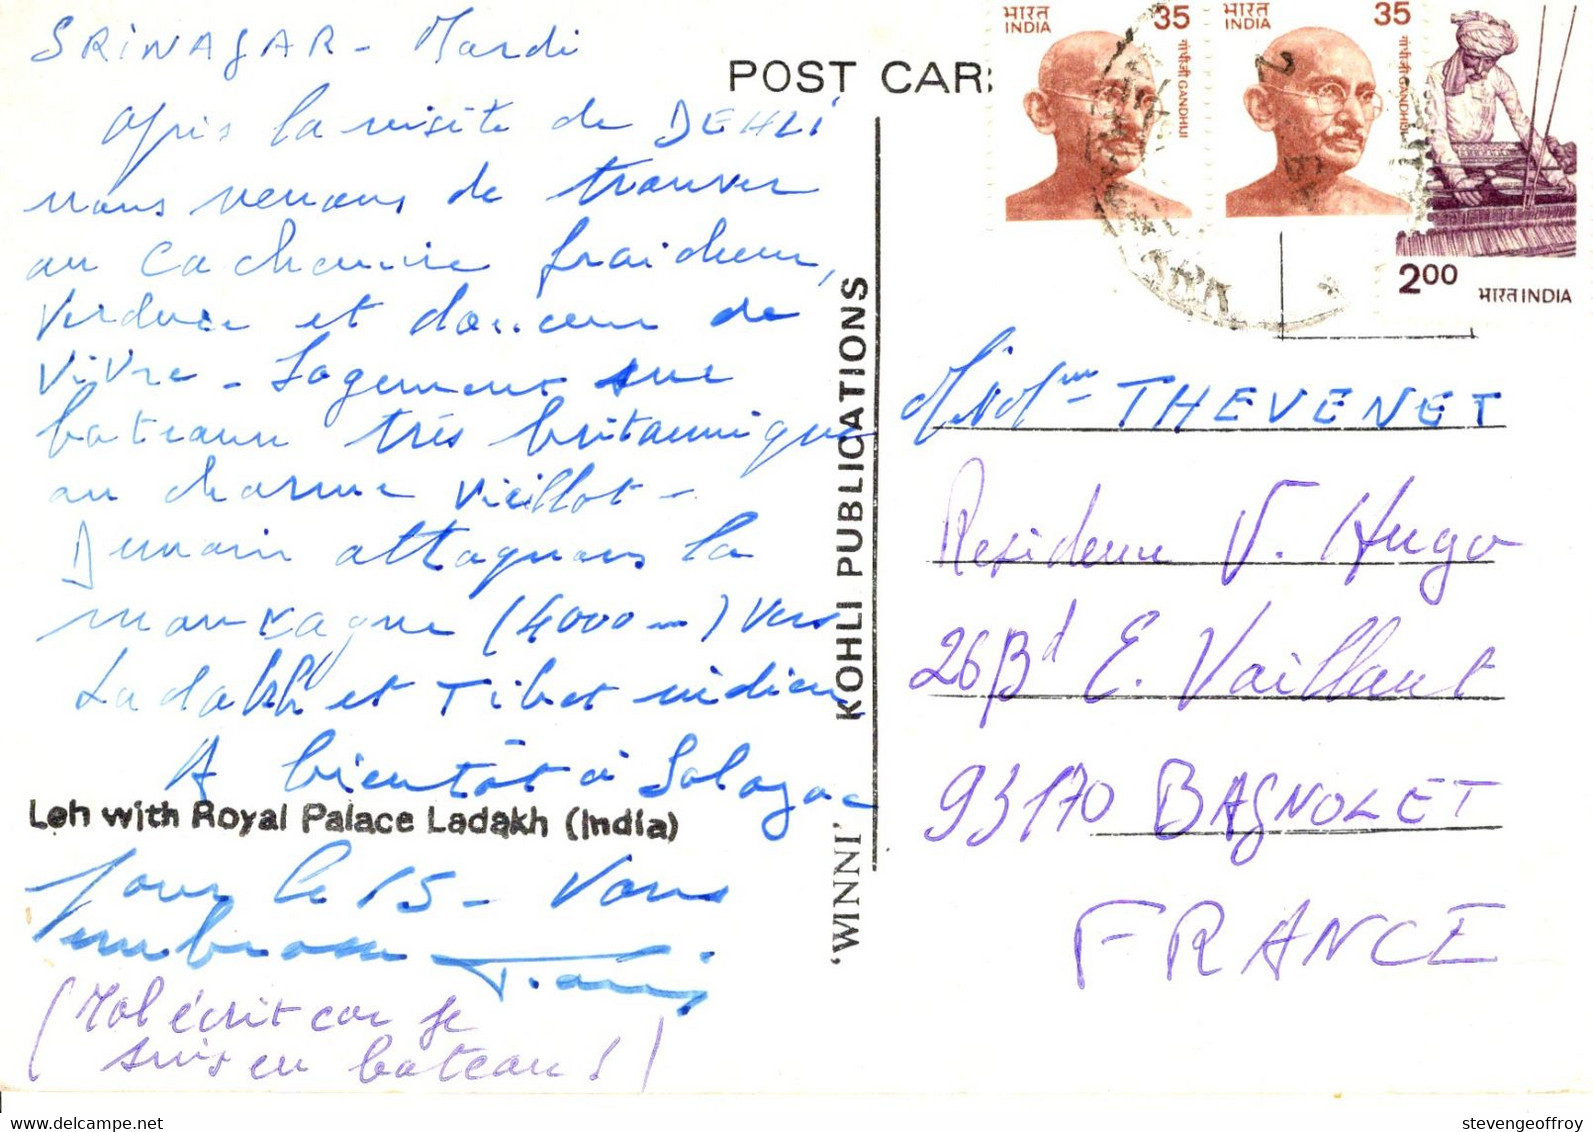 SRINAGAR - Mardi
Après la visite de DEHLI
nous venons de trouver
au Cachemire fraicheur,
Verdure et douceur de
vivre - Logement sur
bateaux très britannique
au charme vieillot -
Demain attaquons la
montagne (4000 m) vers
Ladakh et Tibet indien
A bientôt à Solazac
Leh with Royal Palace Ladakh (India)
pour le 15 - Vous
embrasse
(Mal écrit car je
suis en bateau !)
'WINNI' KOHLI PUBLICATIONS
POST CAR
भारत 35
INDIA
गांधीजी GANDHIJI
भारत 35
INDIA
गांधीजी GANDHIJI
2.00 भारत INDIA
M. M^me THEVENET
Residence V. Hugo
26 B^d E. Vaillant
93170 BAGNOLET
FRANCE
www.delcampe.net
stevengeoffroy